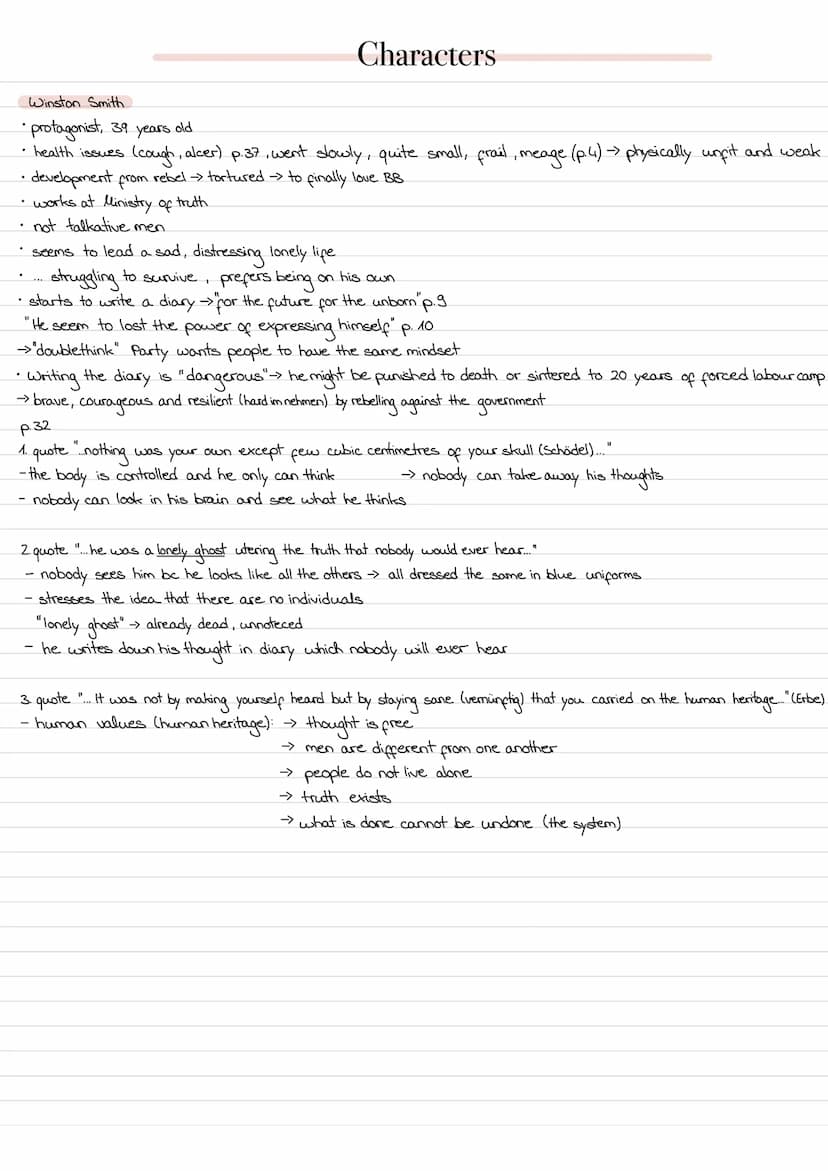 Characters
Winston Smith
· protagonist, 39 years old
· health issues (cough, alcer) p.37, went slowly, quite small, frail, meage (p.4) → physically unfit and weak
· development from rebel → tortured → to finally love BB
· works at Ministry of truth
· not talkative men
· seems to lead a sad, distressing lonely life
· ... struggling to survive, prefers being on his own
· starts to write a diary → "for the future for the unborn" p.9
"He seem to lost the power of expressing himself" p. 10
→ "doublethink" Party wants people to have the same mindset
· Writing the diary is "dangerous" → he might be punished to death or sintered to 20 years of forced labour camp
→ brave, courageous and resilient (hard im nehmen) by rebelling against the government
p.32
1. quote "..nothing was your own except few cubic centimetres of your skull (Schödel)..."
- the body is controlled and he only can think → nobody can take away his thoughts
- nobody can look in his brain and see what he thinks
2. quote "...he was a lonely ghost utering the truth that nobody would ever hear..."
- nobody sees him bc he looks like all the others → all dressed the same in blue uniforms
- stresses the idea that there are no individuals
"lonely ghost" → already dead, unnoteced
- he writes down his thought in diary which nobody will ever hear
3. quote "... It was not by making yourself heard but by staying sane (vernünftig) that you carried on the human heritage..." (Erbe)
- human values (human heritage): → thought is free
→ men are different from one another
→ people do not live alone
→ truth exists
→ what is done cannot be undone (the system)